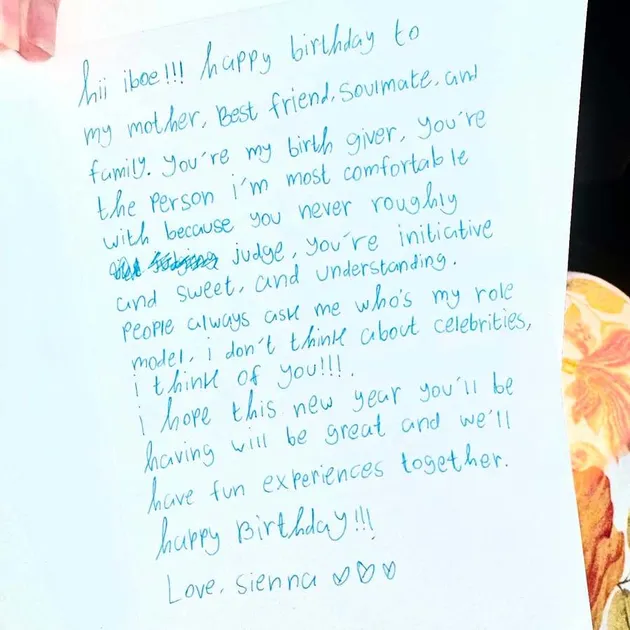 hii iboe!!! happy birthday to
my mother, Best friend, Soulmate, and
family. you're my birth giver, you're
the person i'm most comfortable
with because you never roughly
judge, you're initiative
and sweet, and understanding.
people always ask me who's my role
model, i don't think about celebrities,
i think of you!!!.
i hope this new year you'll be
having will be great and we'll
have fun experiences together.
happy Birthday!!!
Love, sienna ♡♡♡